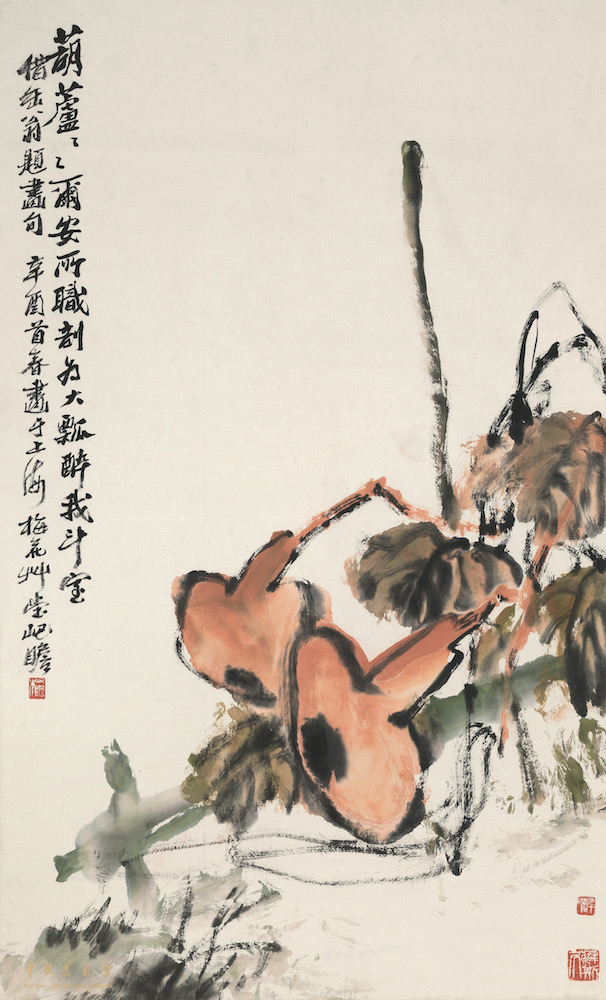 葫蘆〻〻爾安所職剖為大瓢醉我斗室
借缶翁題畫句 辛酉首春畫于上海 梅花艸堂屺瞻